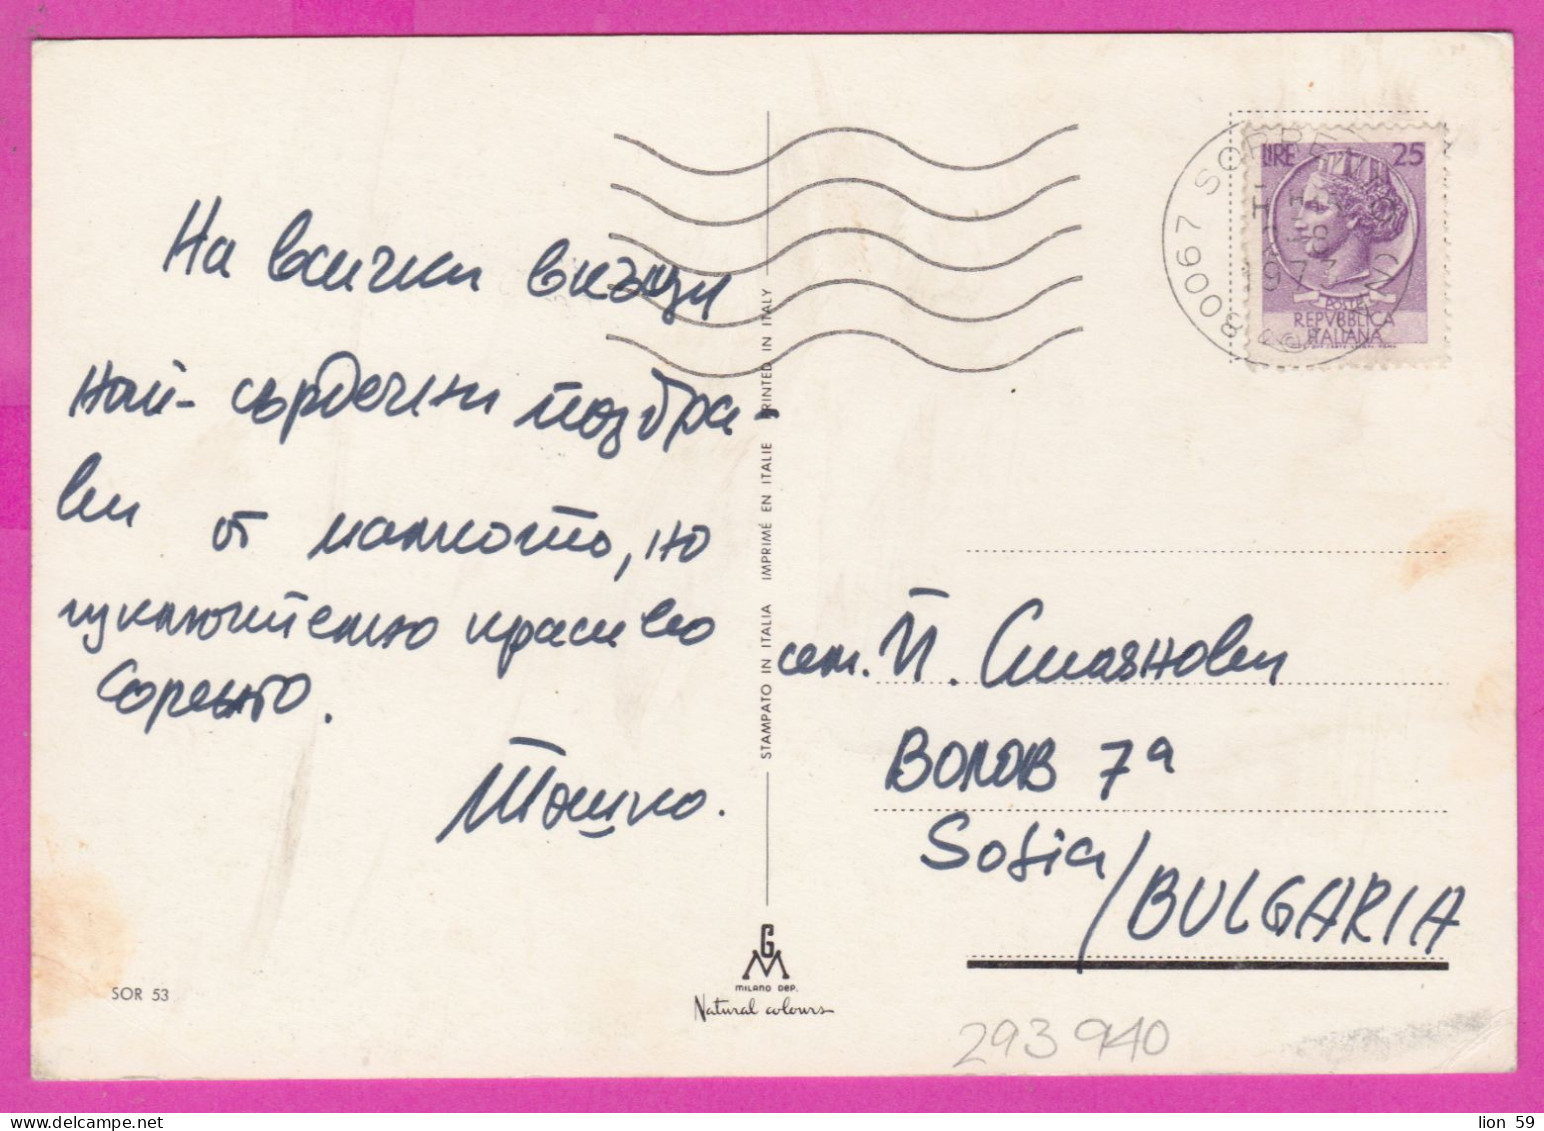 На всички вкъщи
най-сърдечни поздра-
ви от малкото, но
изключително красиво
Соренто.
Тошко.
SOR 53
STAMPATO IN ITALIA IMPRIMÉ EN ITALIE PRINTED IN ITALY
GM
MILANO DEP.
Natural colours
80067 SORRENTO
1977
LIRE 25
POSTE
REPVBBLICA
ITALIANA
сем. Й. Стоянови
ВОЛОВ 7а
Sofia/BULGARIA
293940
lion 59